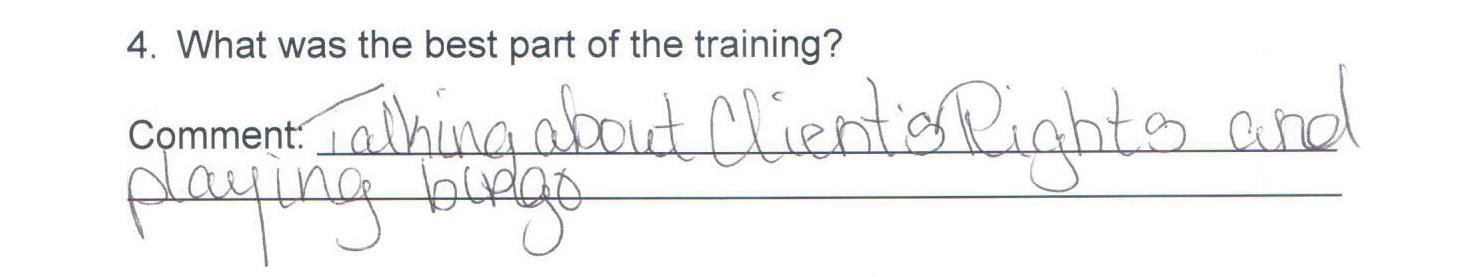 4. What was the best part of the training?
Comment: Talking about Client's Rights and
playing bingo